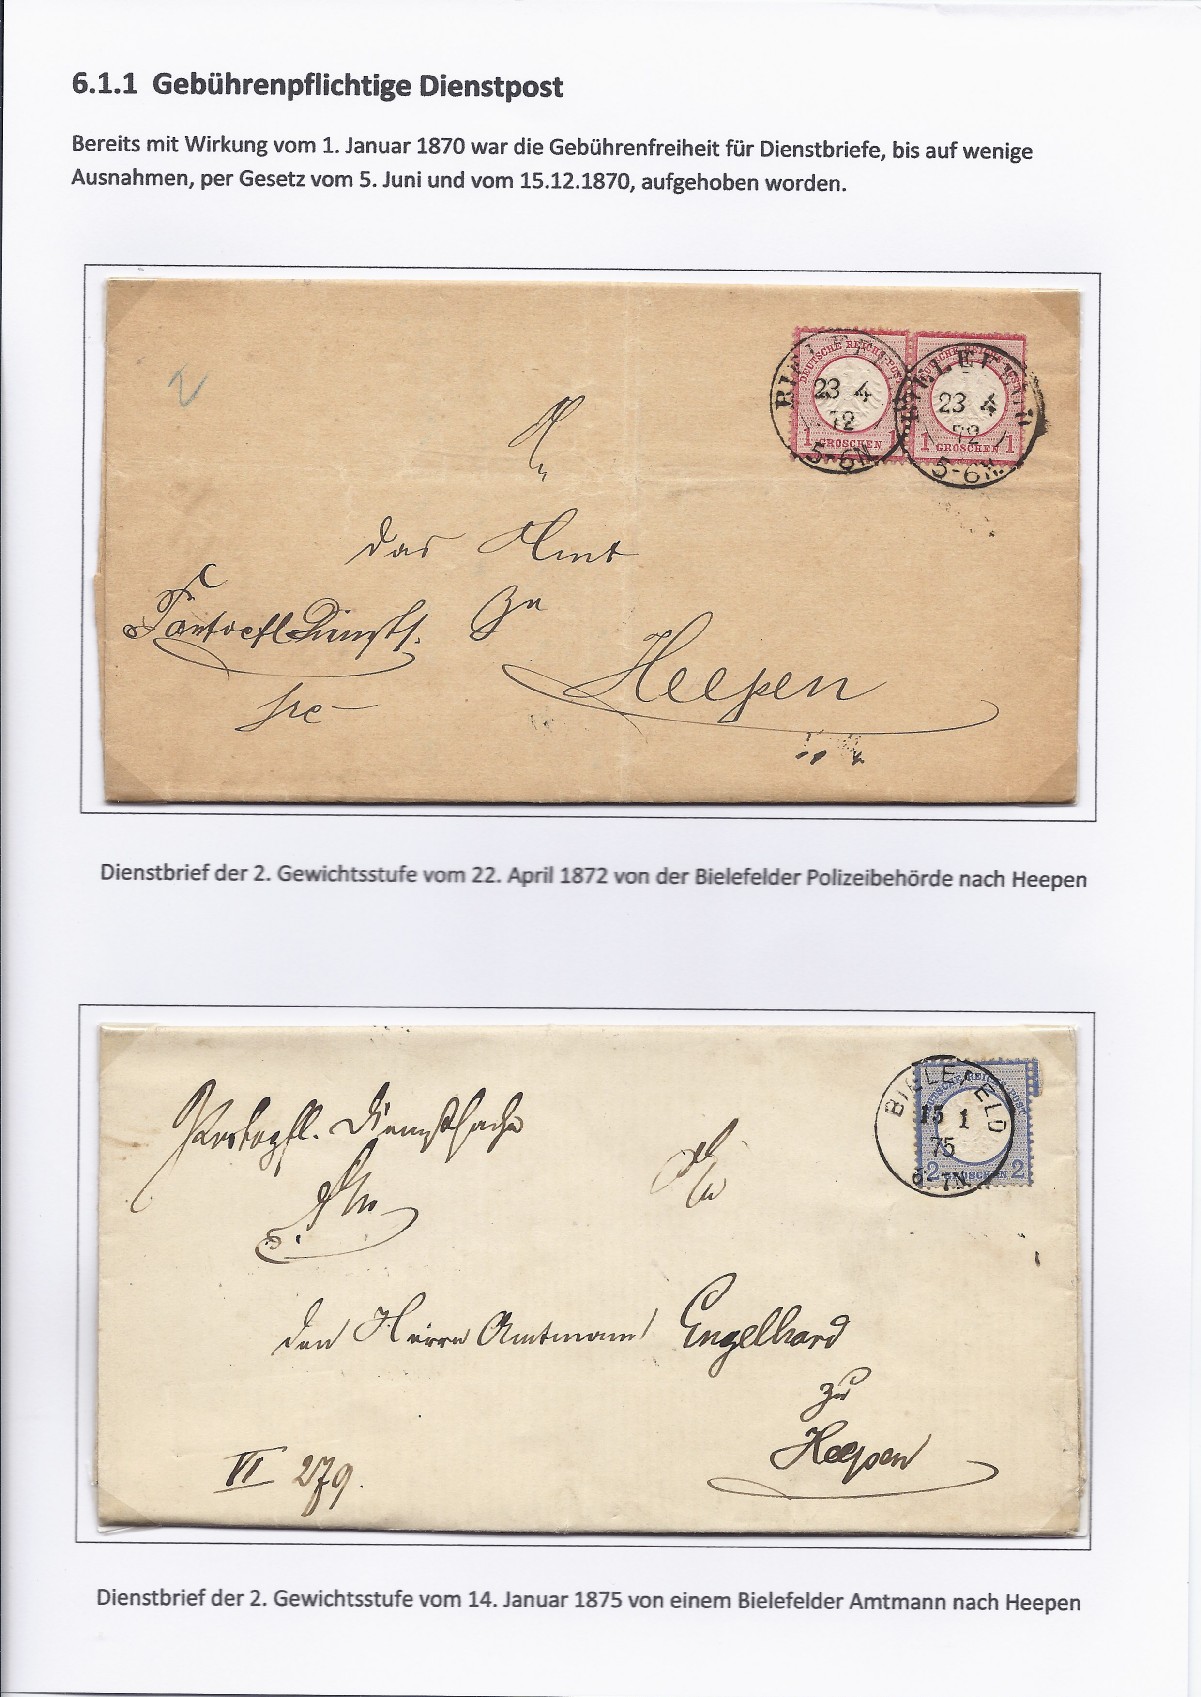 6.1.1 Gebührenpflichtige Dienstpost
Bereits mit Wirkung vom 1. Januar 1870 war die Gebührenfreiheit für Dienstbriefe, bis auf wenige
Ausnahmen, per Gesetz vom 5. Juni und vom 15.12.1870, aufgehoben worden.
2
DEUTSCHE REICHS-POST
1 GROSCHEN 1
DEUTSCHE REICHS-POST
1 GROSCHEN 1
BIELEFELD
23 4
72
5-6N.
BIELEFELD
23 4
72
5-6N.
An
das Amt
zu
Heepen
Dienstbrief der 2. Gewichtsstufe vom 22. April 1872 von der Bielefelder Polizeibehörde nach Heepen
DEUTSCHE REICHS-POST
2 GROSCHEN 2
BIELEFELD
15 1
75
6-7N.
Portopfl. Dienstsache
An
den Herrn Amtmann Engelhard
zu
Heepen
VI 279.
Dienstbrief der 2. Gewichtsstufe vom 14. Januar 1875 von einem Bielefelder Amtmann nach Heepen